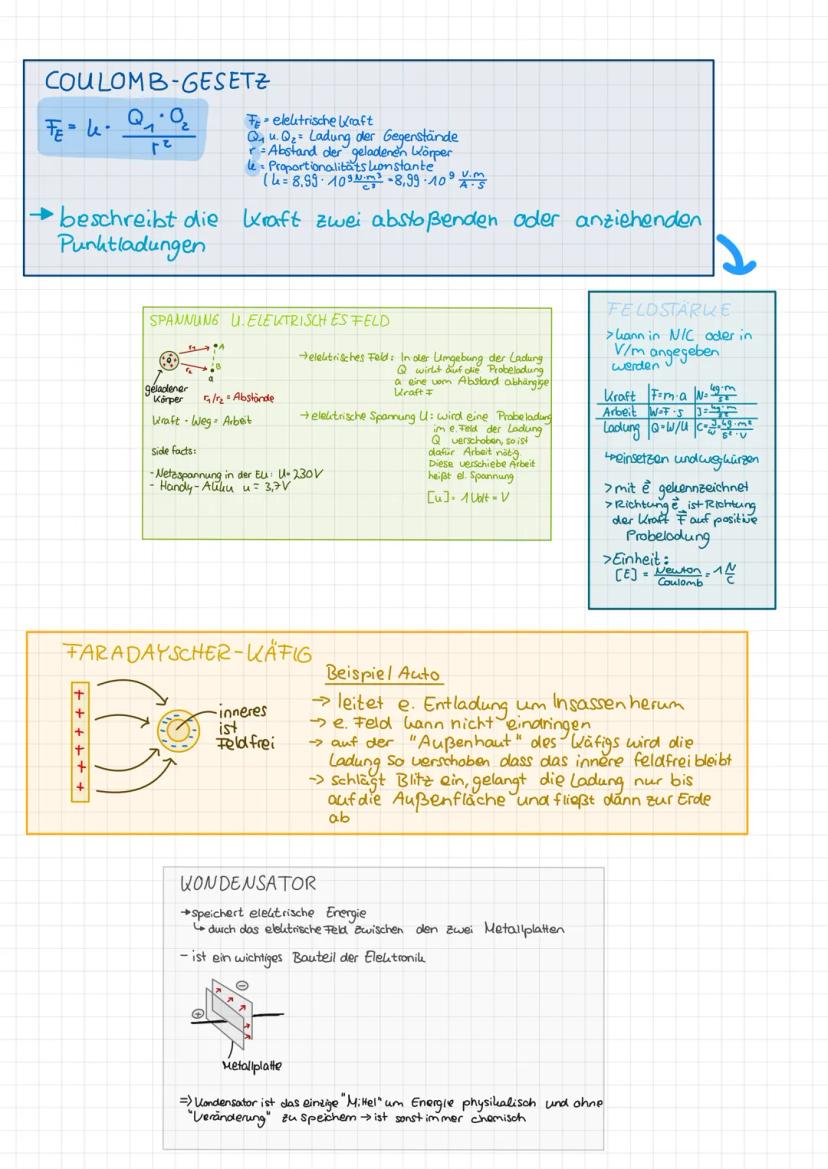 COULOMB-GESETZ
F_E = k · Q_1 · Q_2 / r²
F_E = elektrische Kraft
Q_1 u. Q_2 = Ladung der Gegenstände
r = Abstand der geladenen Körper
k = Proportionalitätskonstante
(k = 8,99 · 10⁹ N·m²/C² = 8,99 · 10⁹ V·m/A·s
→ beschreibt die Kraft zwei abstoßenden oder anziehenden
Punktladungen
SPANNUNG U. ELEKTRISCHES FELD
r_1 A
r_2 B
Q
a
geladener
Körper
r_1/r_2 = Abstände
Kraft · Weg = Arbeit
Side facts:
- Netzspannung in der EU: U = 230V
- Handy-Akku u = 3,7V
→ elektrisches Feld: In der Umgebung der Ladung
Q wirkt auf die Probeladung
a eine vom Abstand abhängige
Kraft F
→ elektrische Spannung U: wird eine Probeladung
im e. Feld der Ladung
Q verschoben, so ist
dafür Arbeit nötig.
Diese verschiebe Arbeit
heißt el. Spannung
[u] = 1 Volt = V
FELDSTÄRKE
> kann in N/C oder in
V/m angegeben
werden
Kraft | F = m · a | N = kg·m/s²
Arbeit | W = F · s | J =
Ladung | Q = W/U | C =
↳ einsetzen und wegkürzen
> mit e⃗ gekennzeichnet
> Richtung e⃗ ist Richtung
der Kraft F⃗ auf positive
Probeladung
> Einheit:
[E] = Newton/Coulomb = 1 N/C
FARADAYSCHER-KÄFIG
+
+
+
+
+
+
inneres
ist
Feldfrei
Beispiel Auto
→ leitet e. Entladung um Insassen herum
→ e. Feld kann nicht eindringen
→ auf der "Außenhaut" des Käfigs wird die
Ladung so verschoben dass das innere feldfrei bleibt
→ schlägt Blitz ein, gelangt die Ladung nur bis
auf die Außenfläche und fließt dann zur Erde
ab
KONDENSATOR
→ speichert elektrische Energie
↳ durch das elektrische Feld zwischen den zwei Metallplatten
- ist ein wichtiges Bauteil der Elektronik
⊖
⊕
Metallplatte
=> Kondensator ist das einzige "Mittel" um Energie physikalisch und ohne
"Veränderung" zu speichern → ist sonst immer chemisch